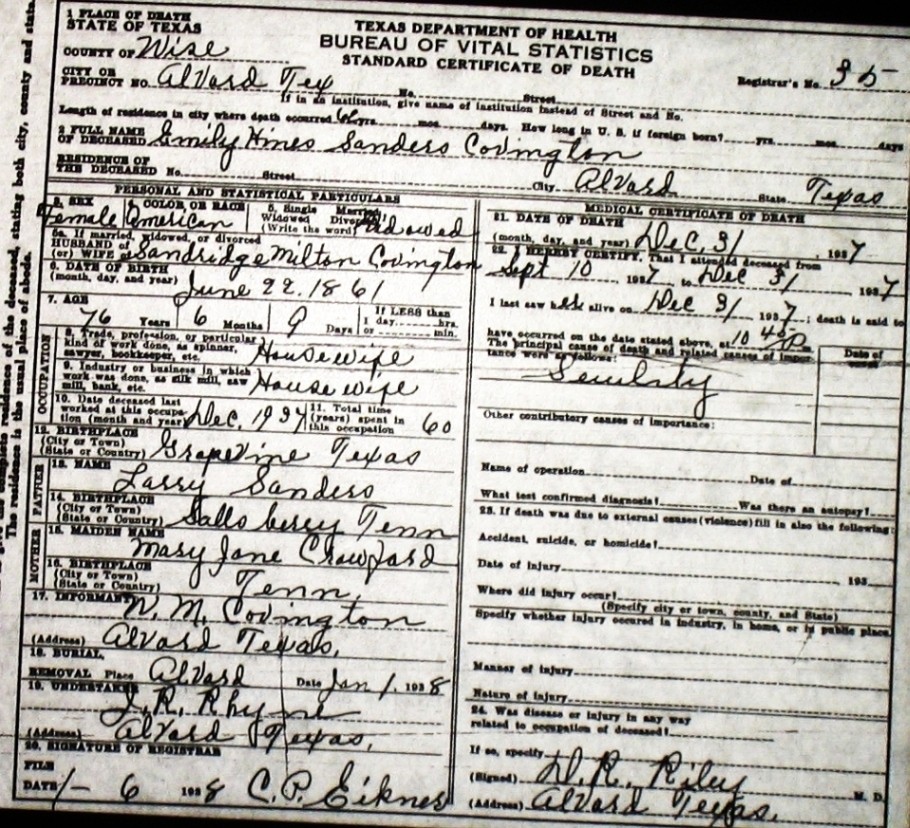 1 PLACE OF DEATH
STATE OF TEXAS
TEXAS DEPARTMENT OF HEALTH
BUREAU OF VITAL STATISTICS
STANDARD CERTIFICATE OF DEATH
COUNTY OF Wise
CITY OR
PRECINCT NO. Alvard Tex No. Street
Registrar's No. 35
If in an institution, give name of institution instead of Street and No.
Length of residence in city where death occurred yrs. mos. days. How long in U. S. if foreign born? yrs. mos. days
2 FULL NAME
OF DECEASED Emily Hines Sanders Covington
RESIDENCE OF
THE DECEASED No. Street City Alvard State Texas
PERSONAL AND STATISTICAL PARTICULARS
3. SEX Female
4. COLOR OR RACE American
5. Single Married
Widowed Divorced
(Write the word) Widowed
5a. If married, widowed, or divorced
HUSBAND of
(or) WIFE of Sandridge Milton Covington
6. DATE OF BIRTH
(month, day, and year) June 22, 1861
7. AGE
76 Years 6 Months 9 Days
If LESS than
1 day, hrs.
or min.
OCCUPATION
8. Trade, profession, or particular
kind of work done, as spinner,
sawyer, bookkeeper, etc. Housewife
9. Industry or business in which
work was done, as silk mill, saw
mill, bank, etc. House wife
10. Date deceased last
worked at this occupa-
tion (month and year) Dec, 1937
11. Total time
(years) spent in
this occupation 60
12. BIRTHPLACE
(City or Town)
(State or Country) Grapevine Texas
FATHER
13. NAME
Larry Sanders
14. BIRTHPLACE
(City or Town)
(State or Country) Salls berry Tenn
MOTHER
15. MAIDEN NAME
Mary Jane Crawford
16. BIRTHPLACE
(City or Town)
(State or Country) Tenn,
17. INFORMANT
Covington
(Address) Alvard Texas,
18. BURIAL,
REMOVAL Place Alvard Date Jan 1, 1938
19. UNDERTAKER
J. R. Rhyne
(Address) Alvard Texas,
20. SIGNATURE OF REGISTRAR
FILE
DATE 1 - 6 1938 C. P. Eiknes
MEDICAL CERTIFICATE OF DEATH
21. DATE OF DEATH
(month, day, and year) Dec, 31, 1937
22. I HEREBY CERTIFY, That I attended deceased from
Sept 10 1937 to Dec 31 1937
I last saw alive on Dec 31 1937; death is said to
have occurred on the date stated above, at 10 45 P
The principal cause of death and related causes of impor-
tance were as follows:
Date of
onset
Senility
Other contributory causes of importance:
Name of operation Date of
What test confirmed diagnosis? Was there an autopsy?
23. If death was due to external causes (violence) fill in also the following:
Accident, suicide, or homicide?
Date of injury 193
Where did injury occur?
(Specify city or town, county, and State)
Specify whether injury occured in industry, in home, or in public place.
Manner of injury
Nature of injury
24. Was disease or injury in any way
related to occupation of deceased?
If so, specify
(Signed) D. R. Riley M. D.
(Address) Alvard Texas,
The residence is the usual place of abode.